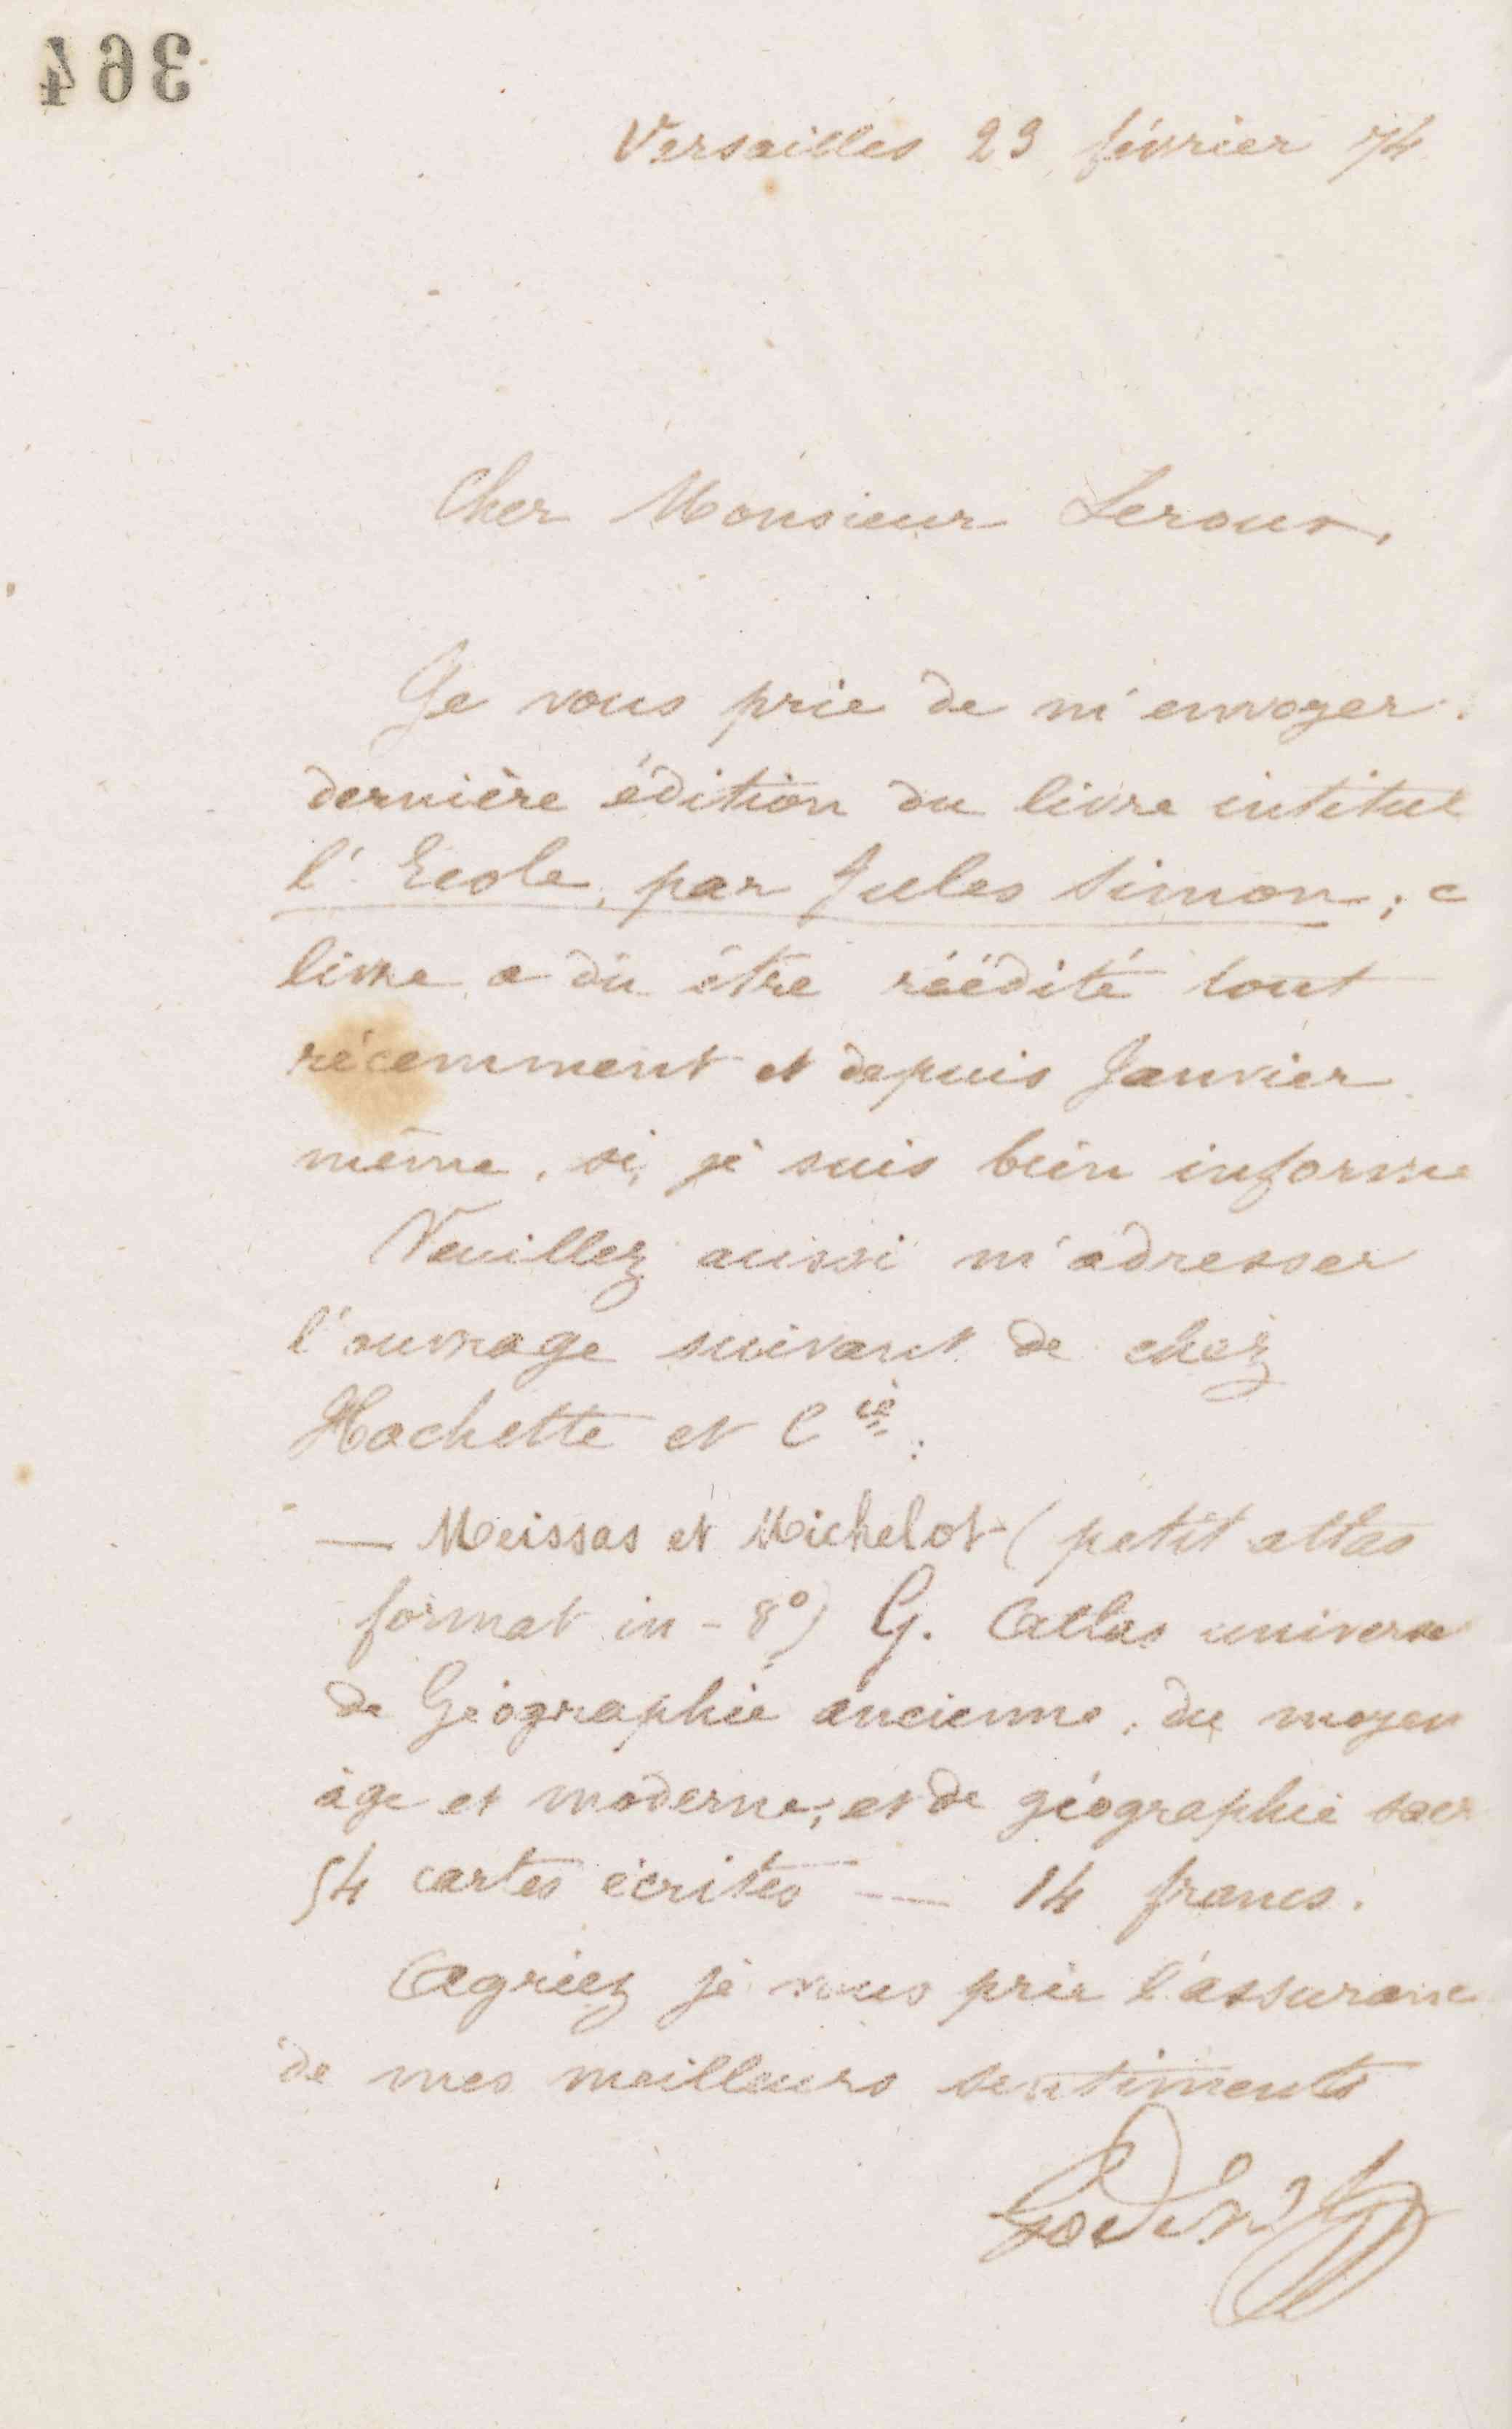 364
Versailles 23 février 74
Cher Monsieur Leroux,
Je vous prie de m'envoyer
dernière édition du livre intitul
l'Ecole, par Jules Simon; c
livre a dû être réédité tout
récemment et depuis Janvier
même, si je suis bien informé
Veuillez aussi m'adresser
l'ouvrage suivant de chez
Hachette et Cie:
— Meissas et Michelot (petit atlas
format in-8°) G. Atlas universe
de Géographie ancienne, du moyen
âge et moderne, et de géographie sacr
54 cartes écrites — 14 francs.
Agréez je vous prie l'assurance
de mes meilleurs sentiments
Godin